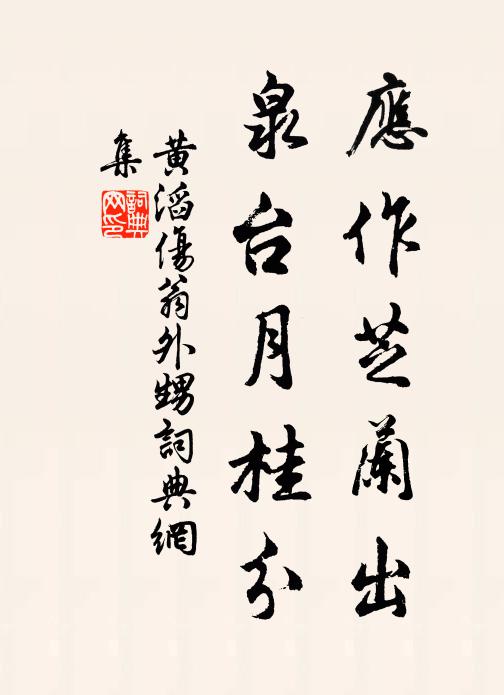 應作芝蘭出
泉台月桂分
黄滔傷翁外甥詞典網
集
詞典
网印